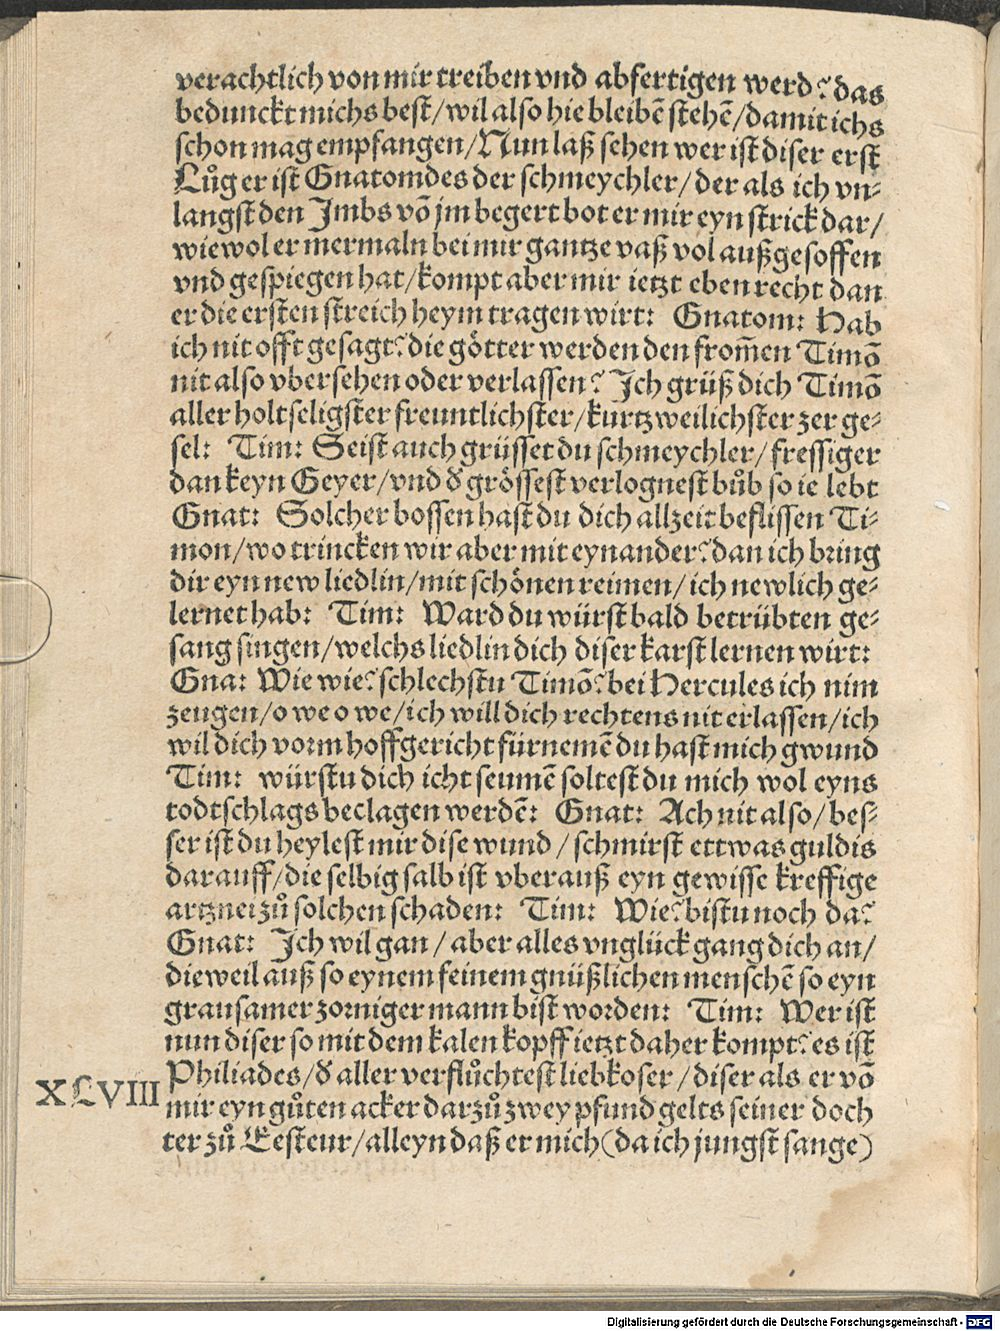 verachtlich von mir treiben vnd abfertigen werd? das
bedunckt michs best/wil also hie bleibē stehē/damit ichs
schon mag empfangen/Nun laß sehen wer ist diser erst
Lůg er ist Gnatomdes der schmeychler/der als ich vn⸗
langst den Imbs vō jm begert bot er mir eyn strick dar/
wiewol er mermaln bei mir gantze vaß vol außgesoffen
vnd gespiegen hat/kompt aber mir ietzt eben recht dan
er die ersten streich heym tragen wirt: Gnatom: Hab
ich nit offt gesagt? die götter werden den from̄en Timō
nit also vbersehen oder verlassen? Ich grüß dich Timō
aller holtseligster freuntlichster/kurtzweilichster zer ge⸗
sel: Tim: Seist auch grüsset du schmeychler/fressiger
dan keyn Geyer/vnd ď grössest verlognest bůb so ie lebt
Gnat: Solcher bossen hast du dich allzeit beflissen Ti⸗
mon/wo trincken wir aber mit eynander? dan ich bring
dir eyn new liedlin/mit schönen reimen/ich newlich ge⸗
lernet hab: Tim: Ward du würst bald betrübten ge⸗
sang singen/welchs liedlin dich diser karst lernen wirt:
Gna: Wie wie? schlechstu Timō? bei Hercules ich nim
zeugen/o we o we/ich will dich rechtens nit erlassen/ich
wil dich vorm hoffgericht fürnemē du hast mich gwund
Tim: würstu dich icht seumē soltest du mich wol eyns
todtschlags beclagen werdē: Gnat: Ach nit also/bes⸗
ser ist du heylest mir dise wund/schmirst ettwas guldis
darauff/die selbig salb ist vberauß eyn gewisse kreffige
artznei zů solchen schaden: Tim: Wie? bistu noch da?
Gnat: Ich wil gan/aber alles vnglück gang dich an/
dieweil auß so eynem feinem gnüßlichen menschē so eyn
grausamer zorniger mann bist worden: Tim: Wer ist
nun diser so mit dem kalen kopff ietzt daher kompt? es ist
Philiades/ď aller verflůchtest liebkoser/diser als er vō
XLVIII
mir eyn gůten acker darzů zwey pfund gelts seiner doch
ter zů Eesteur/alleyn daß er mich (da ich jungst sange)
Digitalisierung gefördert durch die Deutsche Forschungsgemeinschaft - DFG